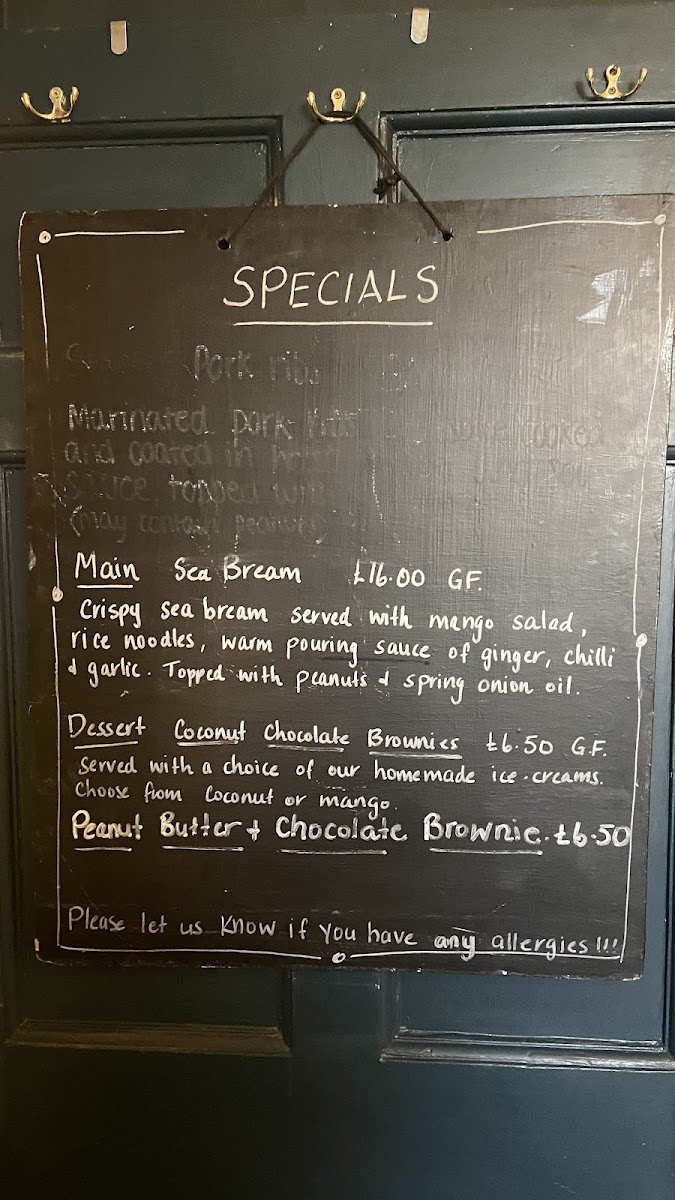 SPECIALS
Pork ribs
Marinated pork ribs cooked
and coated in
sauce topped with
(may contain peanuts)
Main Sea Bream £16.00 GF.
Crispy sea bream served with mango salad,
rice noodles, warm pouring sauce of ginger, chilli
& garlic. Topped with peanuts & spring onion oil.
Dessert Coconut Chocolate Brownies £6.50 G.F.
Served with a choice of our homemade ice-creams.
Choose from Coconut or mango.
Peanut Butter + Chocolate Brownie. £6.50
Please let us know if you have any allergies!!!